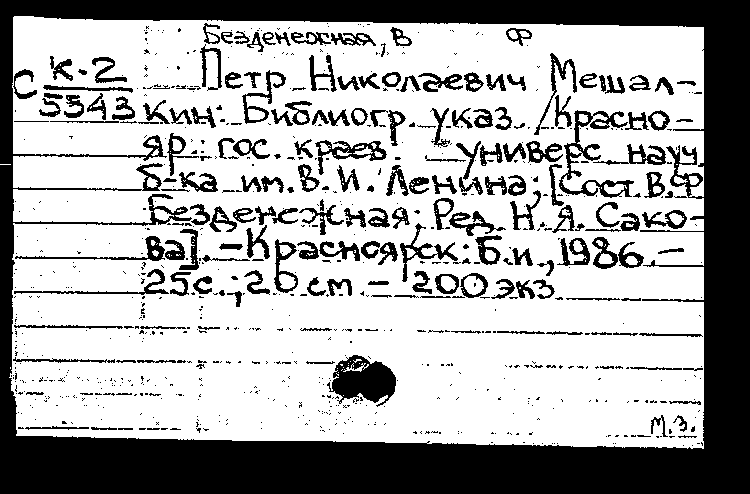 Безденежная, В Ф
С К-2 Петр Николаевич Мешал-
5543 кин: Библиогр. указ. /Красно-
яр. гос. краев. универс. науч.
б-ка им. В. И. Ленина; [Сост. В.Ф
Безденежная; Ред. Н. Я. Сако-
ва]. – Красноярск: Б.и., 1986. –
25с.; 20 см – 200 экз
М.З.